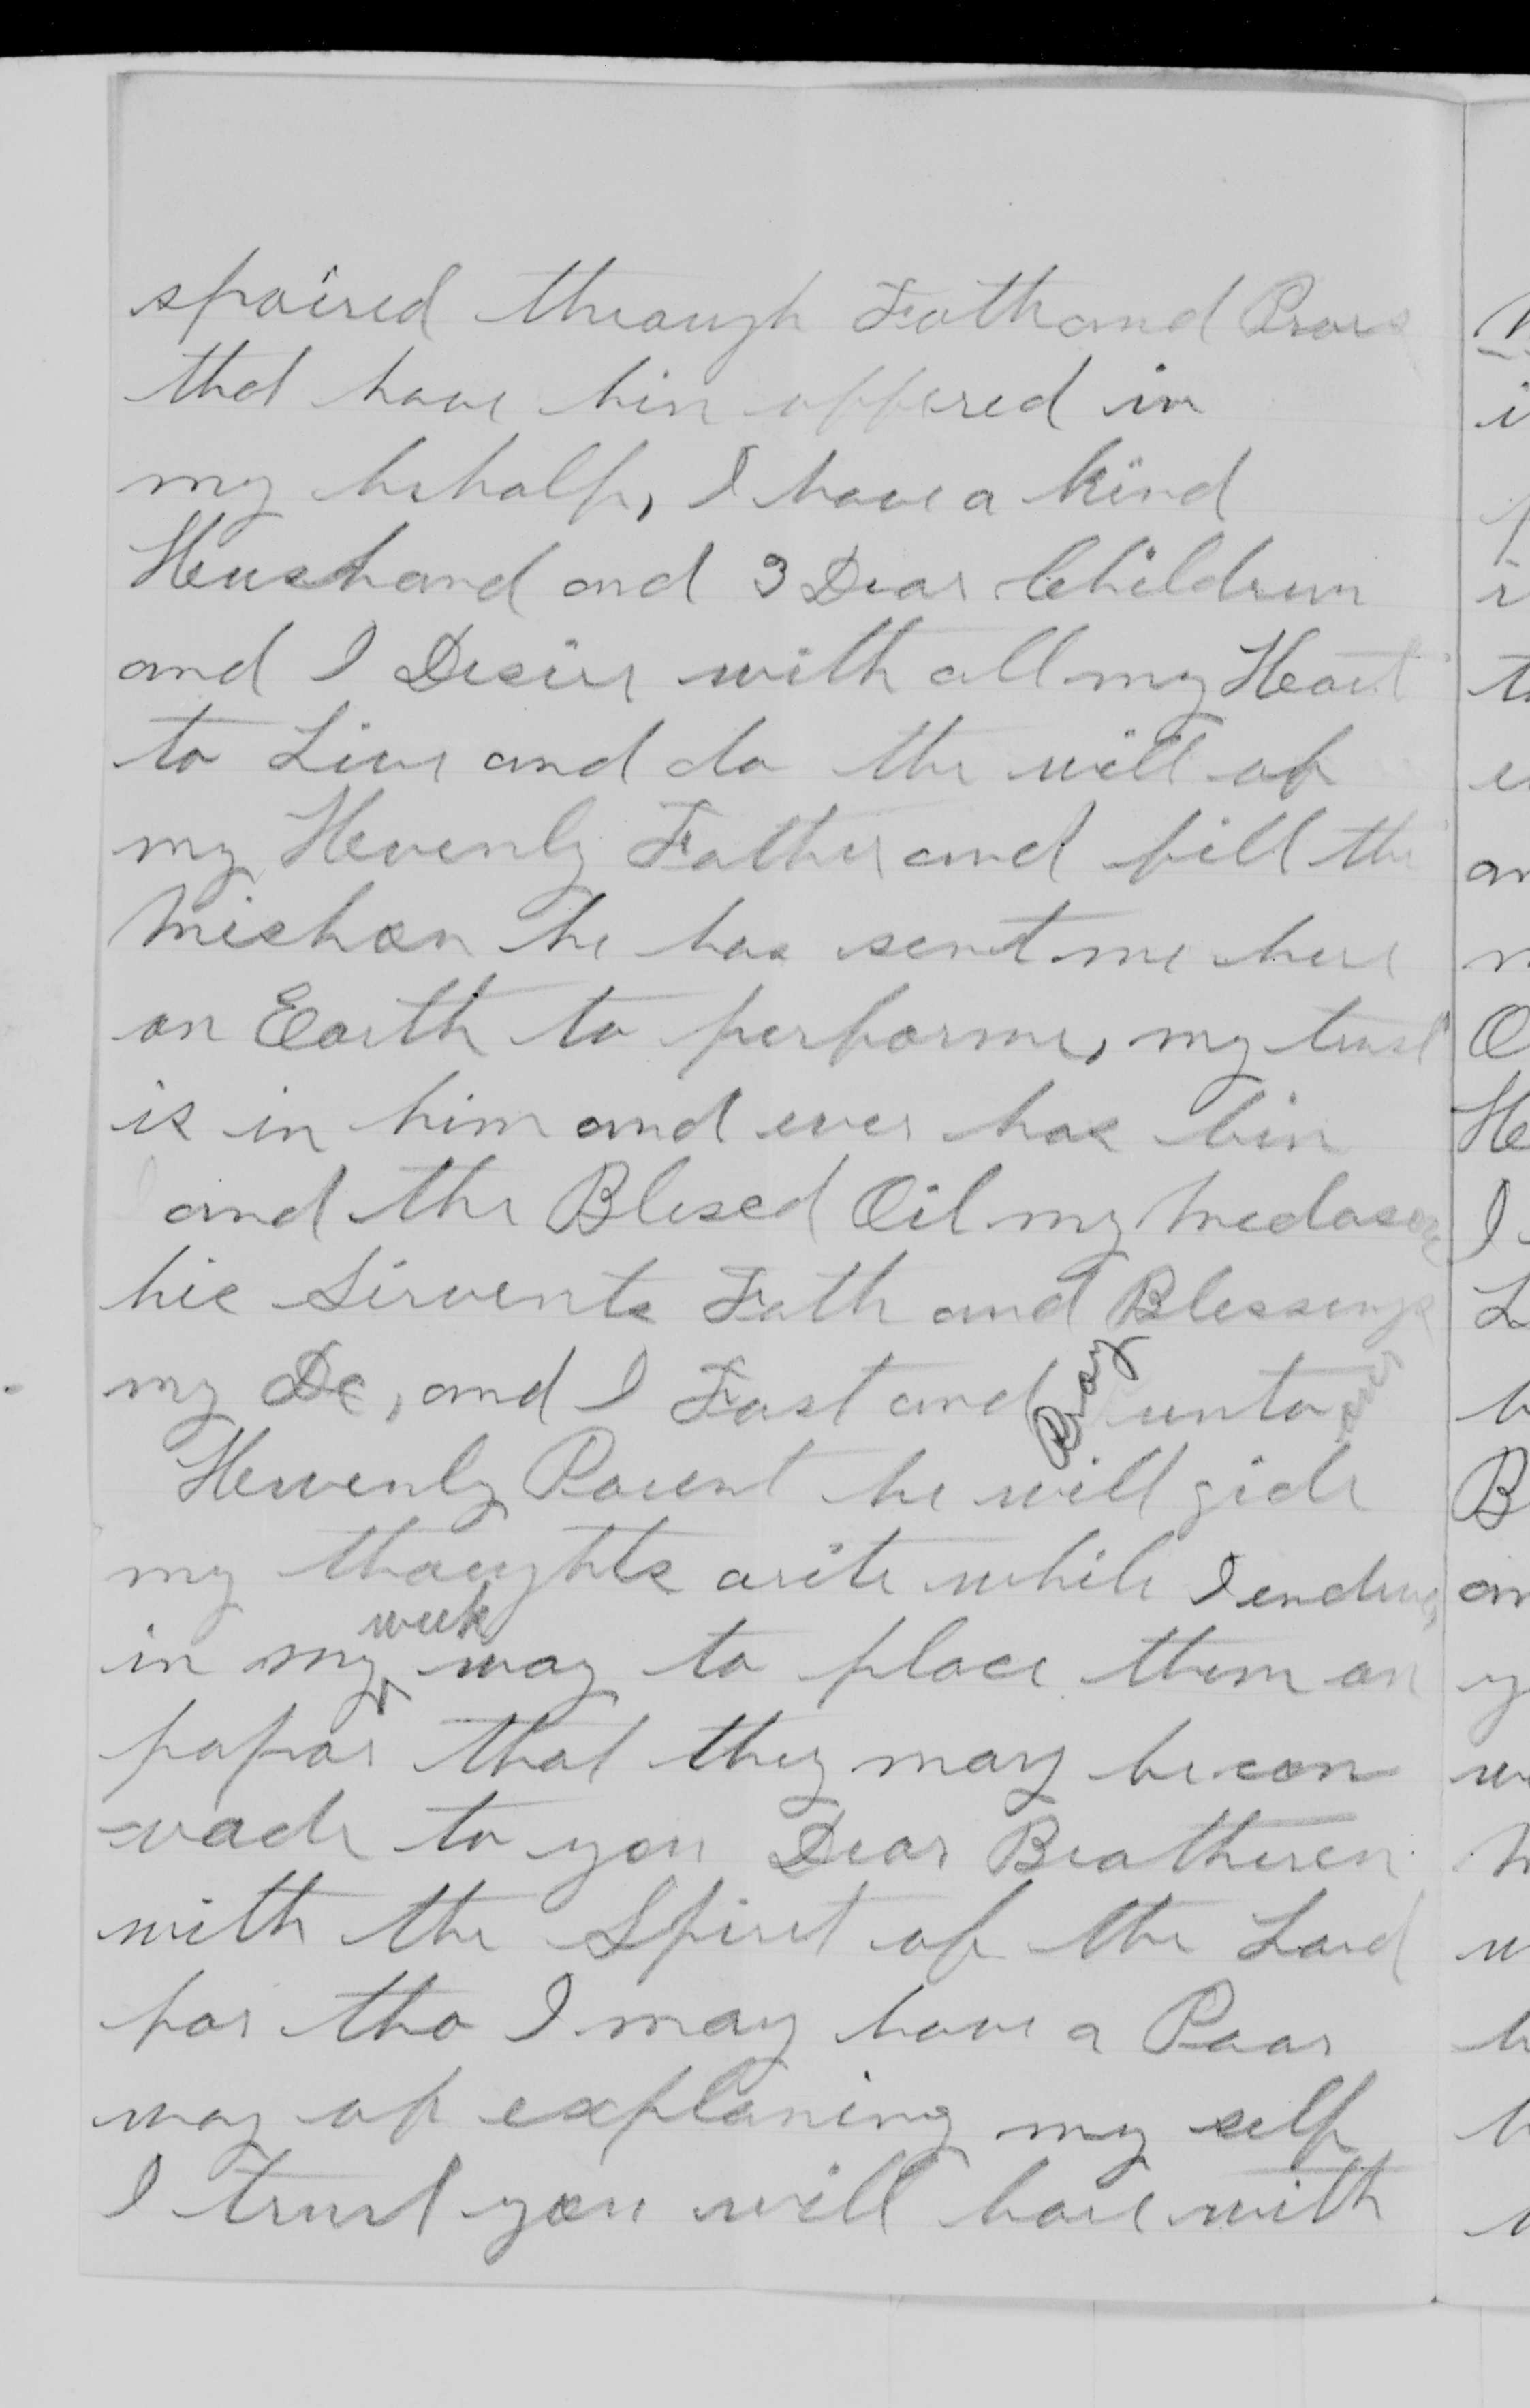 spaired through Fath and Prars
that have bin offered in
my behalf, I have a kind
Heusband and 3 Dear Children
and I Desire with all my Heart
to Live and do the will of
my Hevenly Father and fill the
Mishon he has sent me here
on Earth to performe, my trust
is in him and ever has bin
and the Blesed Oil my Medason
his Sirvents Fath and Blessings
my Dc, and I Fast and Pray unto my
Hevenly Parent he will gide
my thoughts arite while I endevg
in my week way to place them on
papar that they may be con
-vade to you Dear Beatheren
with the Spirit of the Lord
for tho I may have a Poor
way of explaning my self
I trust you will bare with